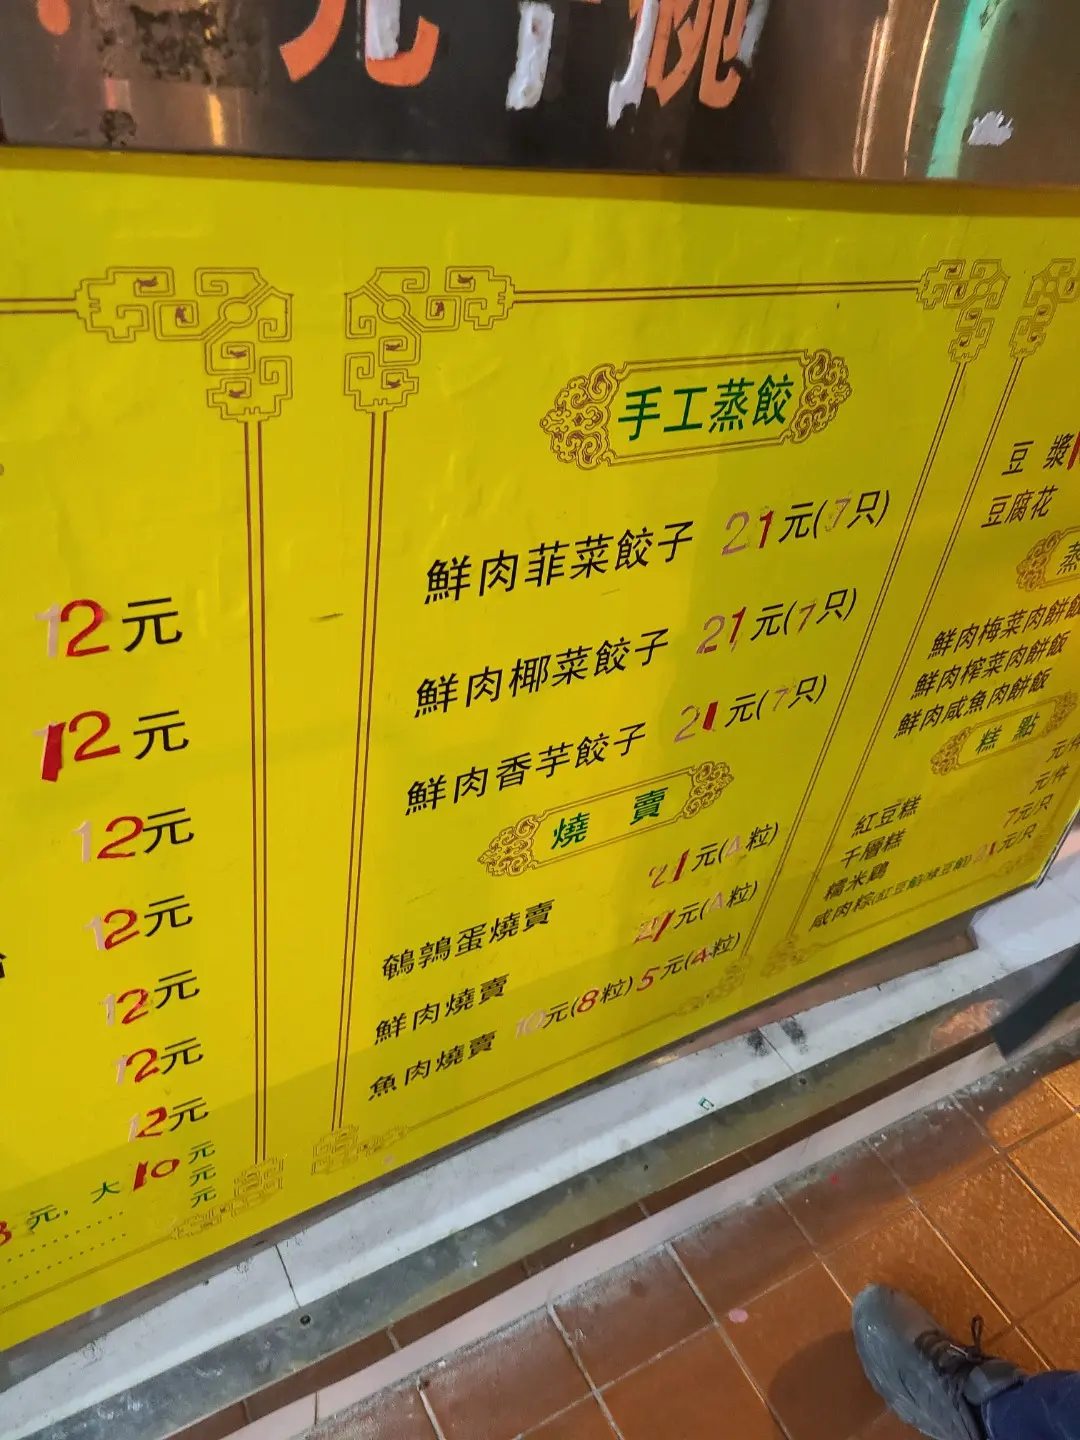 元
碗
12元
12元
12元
12元
12元
12元
12元
元, 大10元
元
元
手工蒸餃
鮮肉菲菜餃子 21元(7只)
鮮肉椰菜餃子 21元(7只)
鮮肉香芋餃子 21元(7只)
燒賣
鵪鶉蛋燒賣 21元(4粒)
鮮肉燒賣 21元(4粒)
魚肉燒賣 10元(8粒) 5元(4粒)
豆漿
豆腐花
蒸
鮮肉梅菜肉餅飯
鮮肉榨菜肉餅飯
鮮肉咸魚肉餅飯
糕點
紅豆糕 元件
千層糕 元件
糯米鷄 7元/只
咸肉粽 21元/只